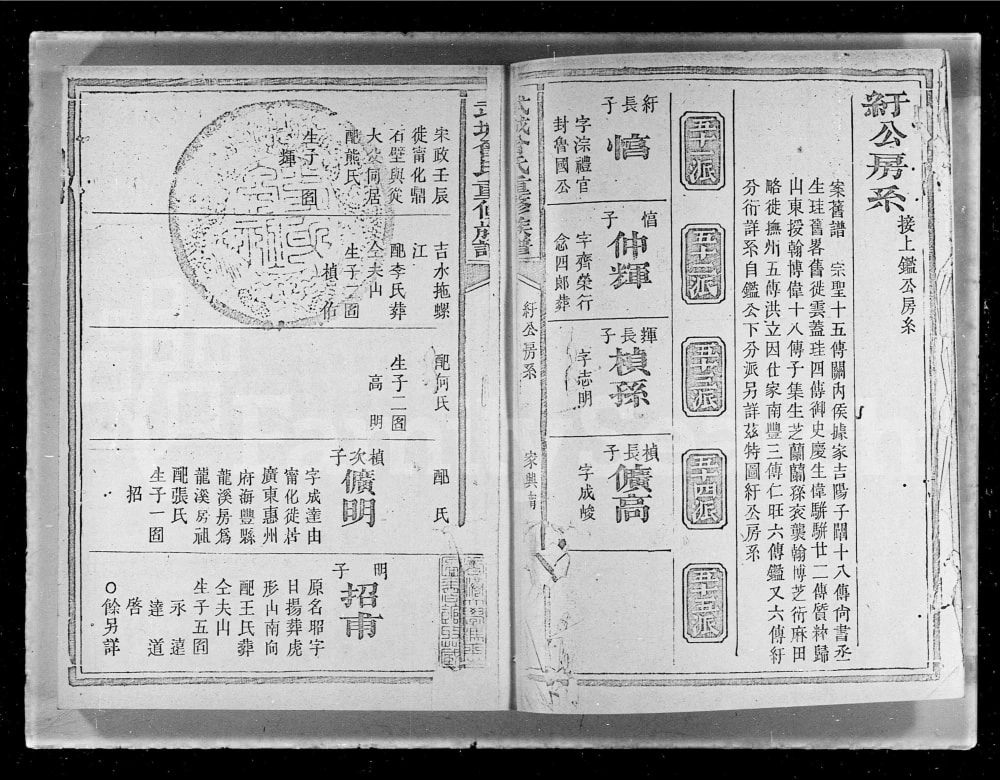 紆公房系
接上鑑公房系
案舊譜 宗聖十五傳關內侯據家吉陽子闢十八傳尙書丞
生珪舊畧舊徙雲蓋珪四傳御史慶生偉駢駢廿二傳質粹歸
山東授翰博偉十八傳子集生芝蘭蘭孫袞襲翰博芝衍麻田
略徙撫州五傳洪立因仕家南豐三傳仁旺六傳鑑又六傳紆
分衍詳系自鑑公下分派另詳茲特圖紆公房系
五十一派
五十二派
五十三派
五十四派
五十五派
紆長子
慥
字淙禮官
封魯國公
慥子
仲輝
字齊榮行
念四郎葬
輝長子
楨孫
字志明
楨長子
儣高
字成峻
武城曾氏重修族譜
紆公房系
宋政壬辰
徙甯化鼎
石壁與從
大徙何居
配熊氏
生子一圖
輝
吉水拖螺
江
配李氏葬
仝夫山
生子二圖
楨 佑
配何氏
生子二圖
高 明
配 氏
楨次子
儣明
字成達由
甯化徙居
廣東惠州
府海豐縣
龍溪房爲
龍溪房祖
配張氏
生子一圖
招
明子
招甫
原名昭字
日揚葬虎
形山南向
配王氏葬
仝夫山
生子五圖
永 遠
達 道
啓
○餘另詳